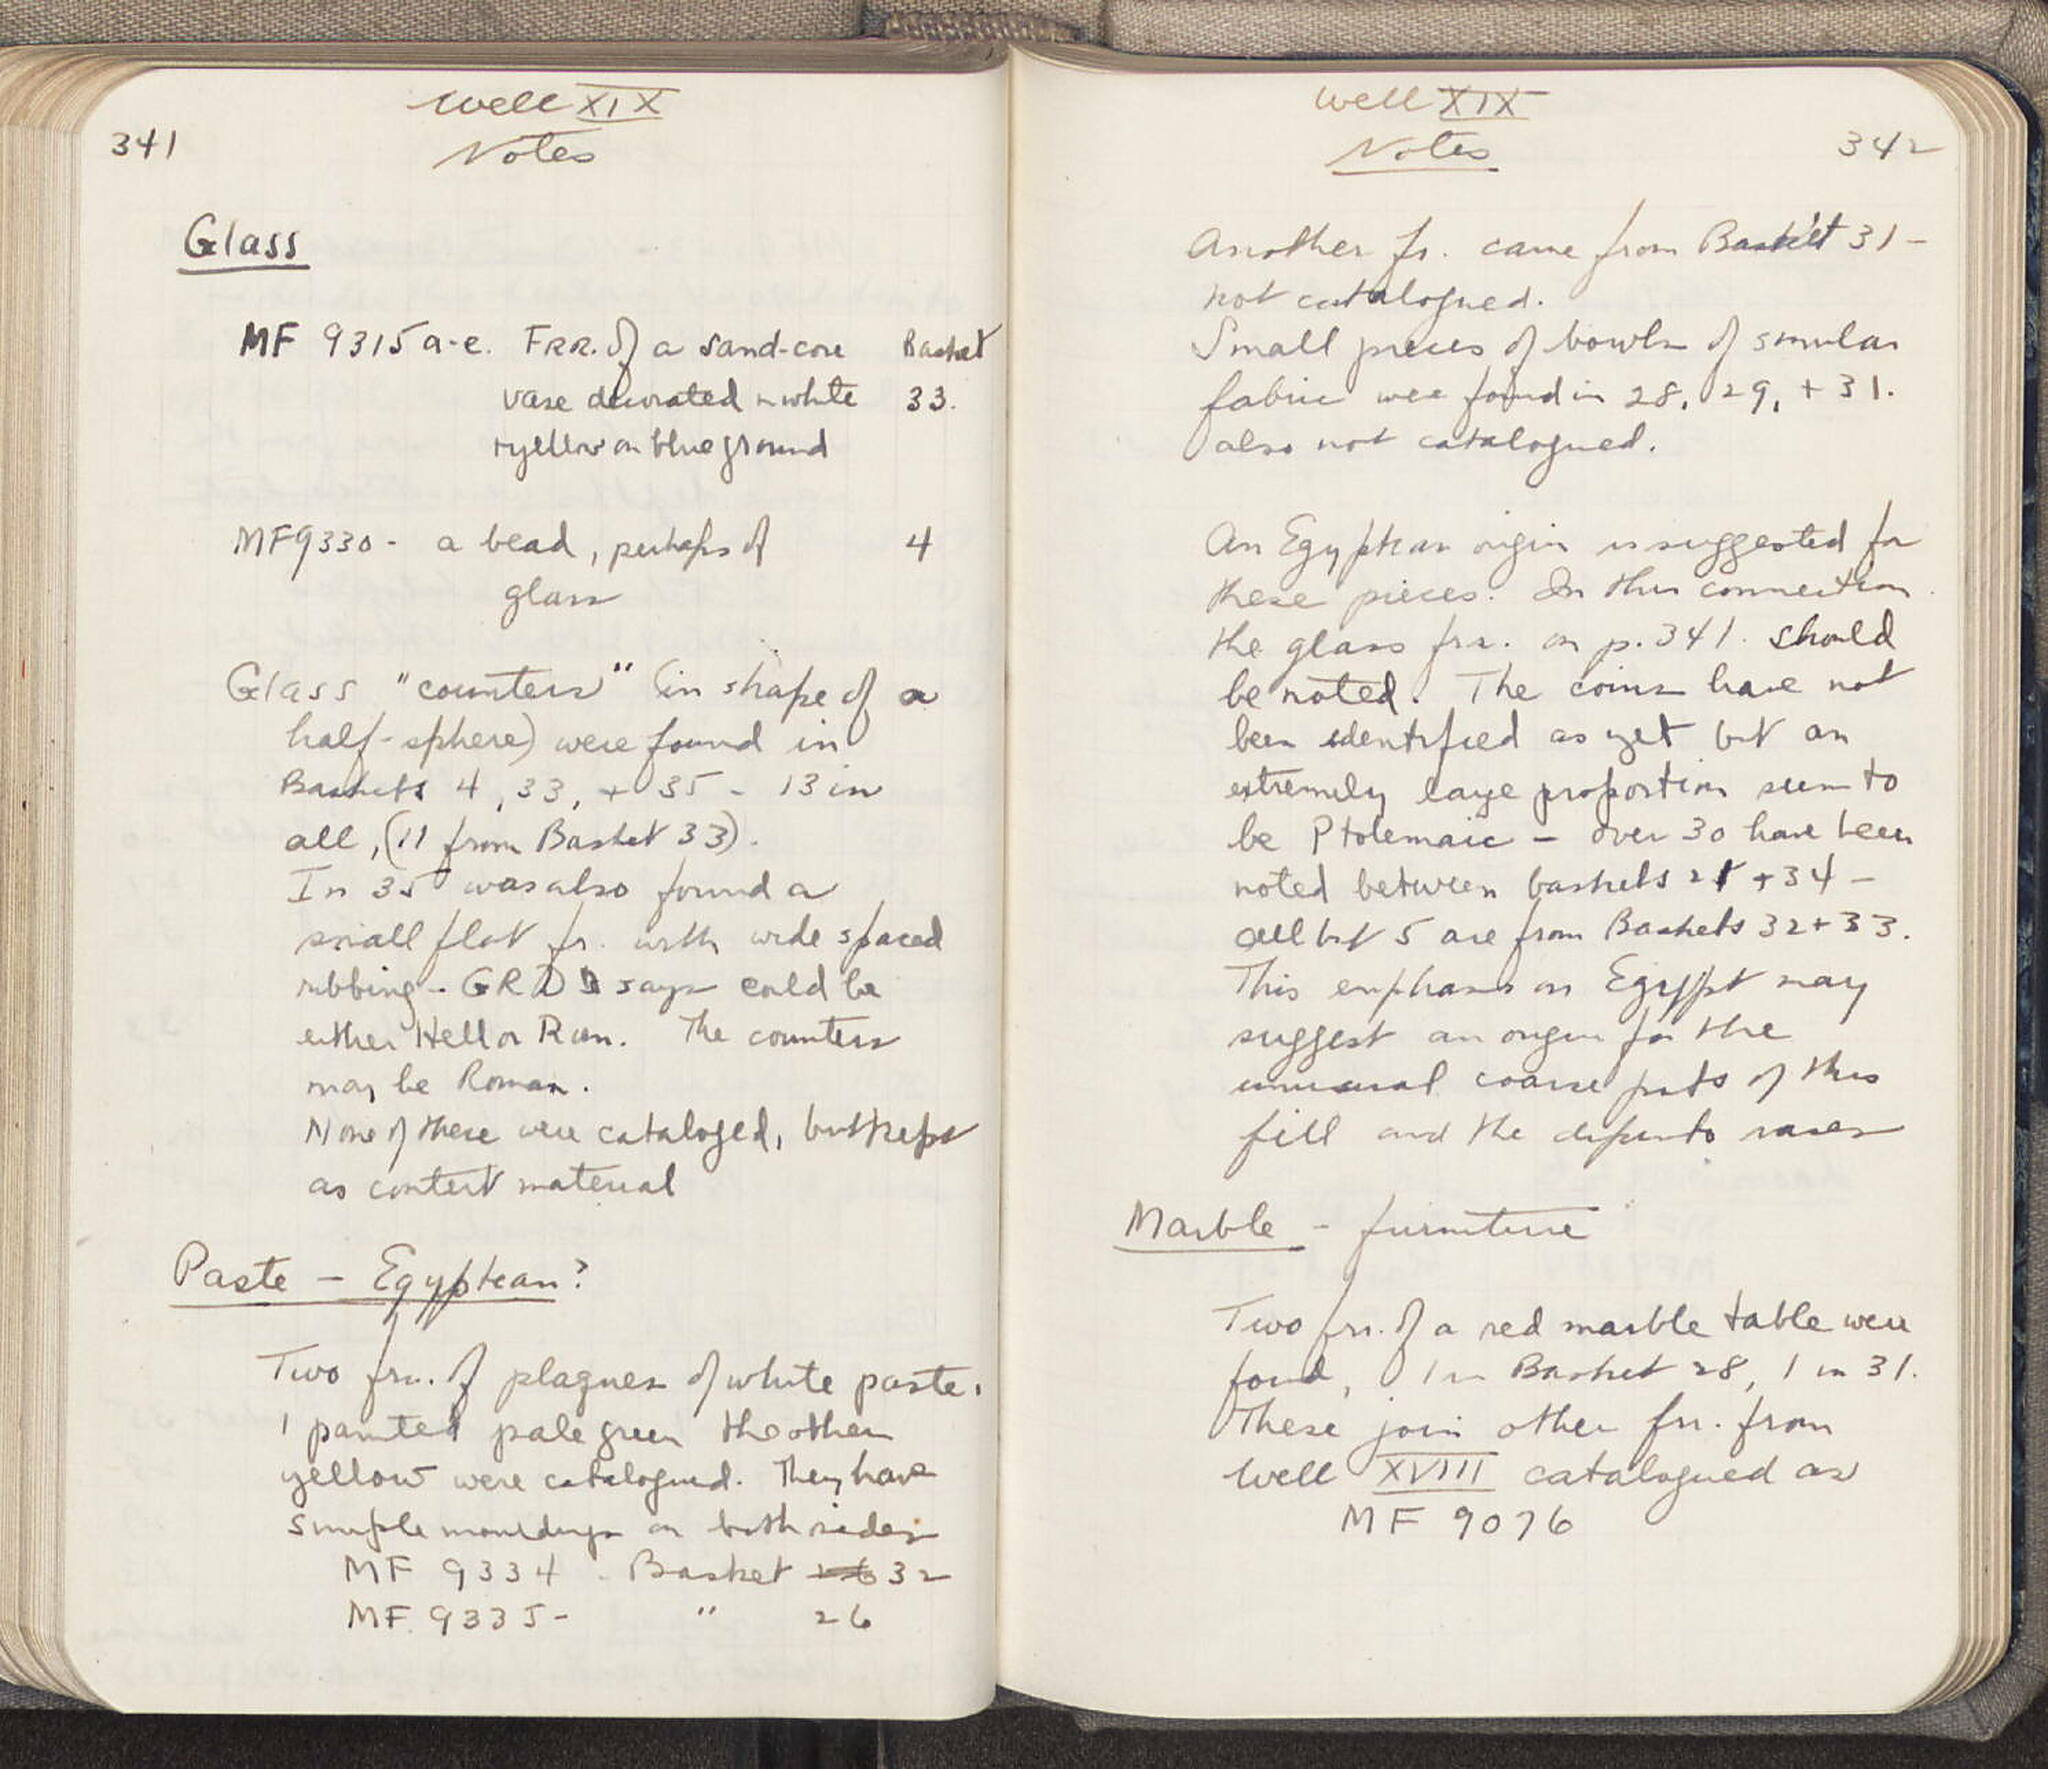 341
Well XIX
Notes
Glass
MF 9315 a-e. Frr. of a sand-core Basket
vase decorated in white 33.
+ yellow on blue ground
MF9330 - a bead, perhaps of 4
glass
Glass "counters" (in shape of a
half-sphere) were found in
Baskets 4, 33, + 35 - 13 in
all, (11 from Basket 33).
In 35 was also found a
small flat fr. with wide spaced
ribbing - GRD says could be
either Hell or Rom. The counters
may be Roman.
None of these were cataloged, but kept
as context material
Paste - Egyptian?
Two frr. of plaques of white paste.
1 painted pale green the other
yellow were catalogued. They have
simple mouldings on both sides
MF 9334 - Basket 26 32
MF. 9335 - " 26
Well XIX
Notes
342
Another fr. came from Basket 31 -
not catalogued.
Small pieces of bowls of similar
fabric were found in 28, 29, + 31.
also not catalogued.
An Egyptian origin is suggested for
these pieces. In this connection
the glass frr. on p. 341. should
be noted. The coins have not
been identified as yet but an
extremely large proportion seem to
be Ptolemaic - over 30 have been
noted between baskets 21 + 34 -
all but 5 are from Baskets 32 + 33.
This emphasis on Egypt may
suggest an origin for the
unusual coarse pots of this
fill and the dipinto vases
Marble - furniture
Two frr. of a red marble table were
found, 1 in Basket 28, 1 in 31.
These join other frr. from
Well XVIII catalogued as
MF 9076